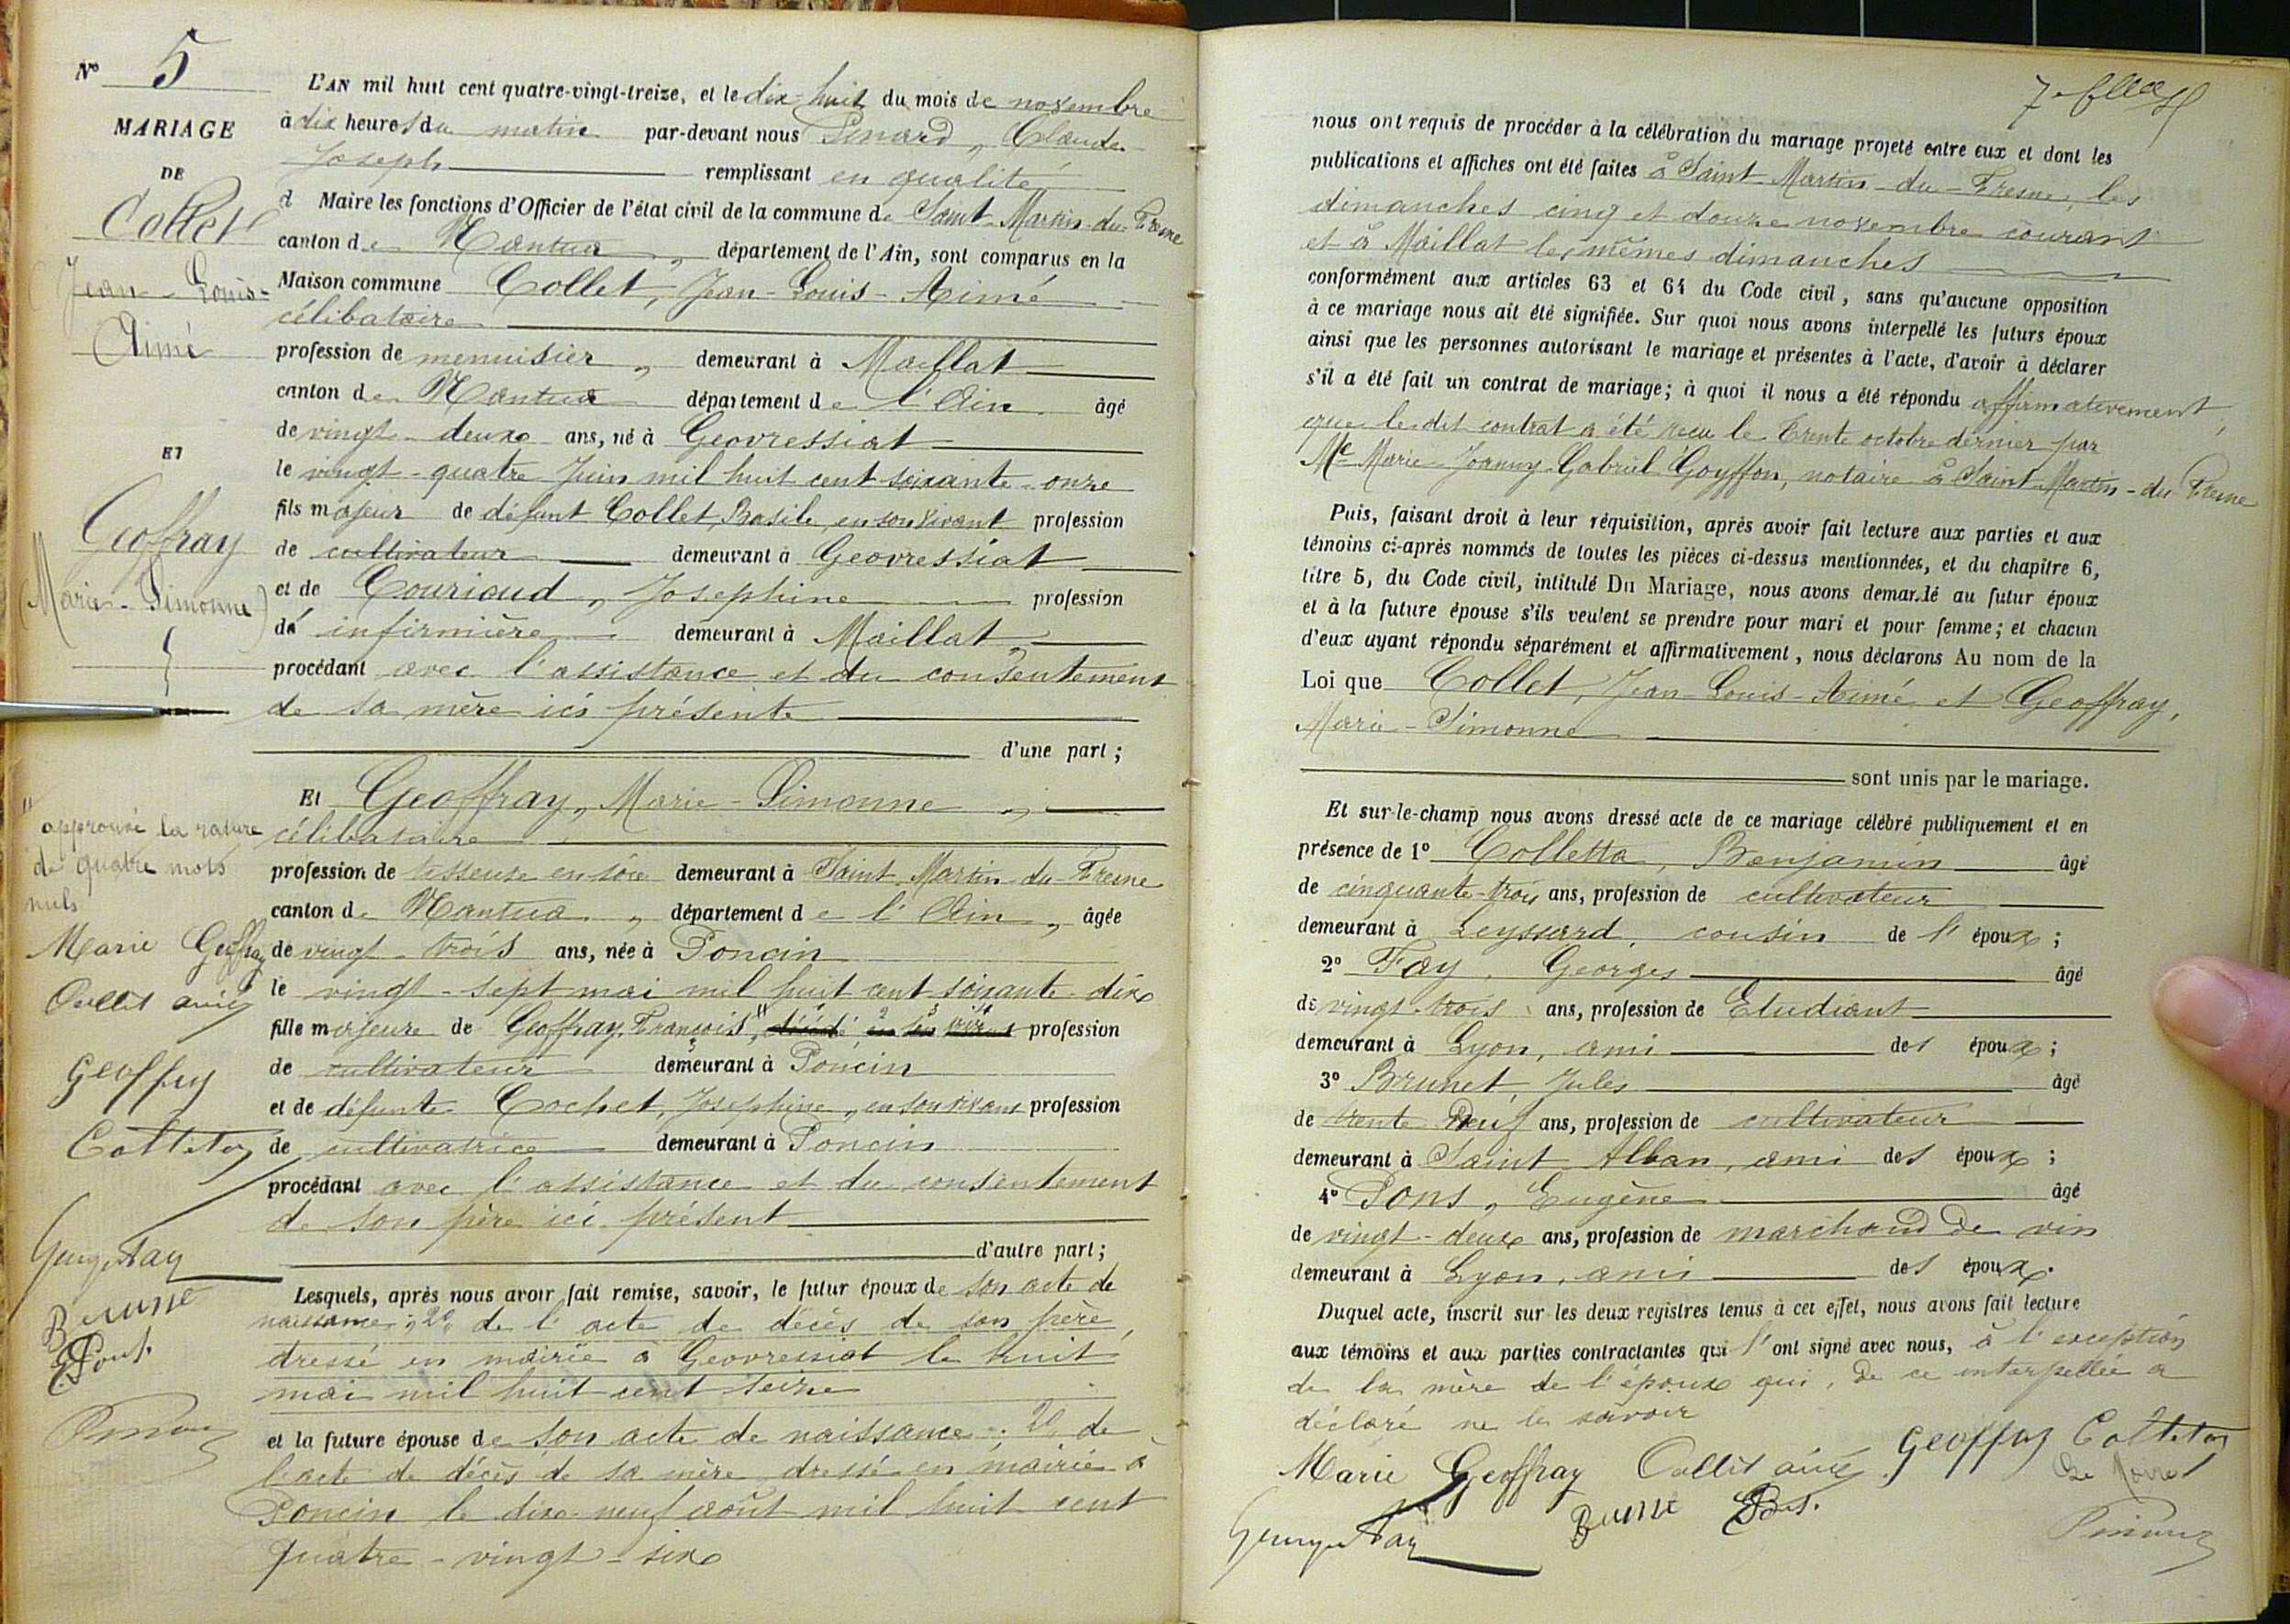 N° 5
MARIAGE
DE
Collet
Jean-Louis-
Aimé
ET
Geoffray
(Marie-Simonne)
approuvé la rature
de quatre mots
nuls
Marie Geoffray
Collet aimé
Geoffray
Colletta
George Fay
Brune
E Pons
L'AN mil huit cent quatre-vingt-treize, et le dix-huit du mois de novembre
à dix heures du matin par-devant nous Pinard, Claude
Joseph remplissant en qualité
d Maire les fonctions d'Officier de l'état civil de la commune de Saint-Martin-du-Fresne
canton de Nantua, département de l'Ain, sont comparus en la
Maison commune Collet, Jean-Louis-Aimé
célibataire
profession de menuisier, demeurant à Maillat
canton de Nantua département de l'Ain âgé
de vingt-deux ans, né à Geovressiat
le vingt-quatre Juin mil huit cent soixante-onze
fils majeur de défunt Collet, Basile, en son vivant profession
de cultivateur demeurant à Geovressiat
et de Couriaud, Josephine profession
d' infirmière demeurant à Maillat
procédant avec l'assistance et du consentement
de sa mère ici présente
d'une part;
Et Geoffray, Marie-Simonne,
célibataire
profession de tisseuse en soie demeurant à Saint-Martin-du-Fresne
canton de Nantua, département de l'Ain, âgée
de vingt-trois ans, née à Poncin
le vingt-sept mai mil huit cent soixante-dix
fille majeure de Geoffray, François, décédé en son vivant profession
de cultivateur demeurant à Poncin
et de défunte Cochet, Josephine, en son vivant profession
de cultivatrice demeurant à Poncin
procédant avec l'assistance et du consentement
de son père ici présent
d'autre part;
Lesquels, après nous avoir fait remise, savoir, le futur époux de son acte de
naissance; 2° de l'acte de décès de son père,
dressé en mairie à Geovressiat le huit
mai mil huit cent seize
et la future épouse de son acte de naissance; 2° de
l'acte de décès de sa mère dressé en mairie à
Poncin le dix-neuf août mil huit cent
quatre-vingt-six
nous ont requis de procéder à la célébration du mariage projeté entre eux et dont les
publications et affiches ont été faites à Saint-Martin-du-Fresne, les
dimanches cinq et douze novembre courant
et à Maillat les mêmes dimanches
conformément aux articles 63 et 64 du Code civil, sans qu'aucune opposition
à ce mariage nous ait été signifiée. Sur quoi nous avons interpellé les futurs époux
ainsi que les personnes autorisant le mariage et présentes à l'acte, d'avoir à déclarer
s'il a été fait un contrat de mariage; à quoi il nous a été répondu affirmativement,
que le dit contrat a été reçu le trente octobre dernier par
Me Marie-Joanny-Gabriel Goyffon, notaire à Saint-Martin-du-Fresne
Puis, faisant droit à leur réquisition, après avoir fait lecture aux parties et aux
témoins ci-après nommés de toutes les pièces ci-dessus mentionnées, et du chapitre 6,
titre 5, du Code civil, intitulé Du Mariage, nous avons demandé au futur époux
et à la future épouse s'ils veulent se prendre pour mari et pour femme; et chacun
d'eux ayant répondu séparément et affirmativement, nous déclarons Au nom de la
Loi que Collet, Jean-Louis-Aimé et Geoffray,
Marie-Simonne
sont unis par le mariage.
Et sur-le-champ nous avons dressé acte de ce mariage célébré publiquement et en
présence de 1° Colletta, Benjamin âgé
de cinquante-trois ans, profession de cultivateur
demeurant à Leyssard, cousin de l'époux;
2° Fay, Georges âgé
de vingt-trois ans, profession de Etudiant
demeurant à Lyon, ami des époux;
3° Brunet, Jules âgé
de trente neuf ans, profession de cultivateur
demeurant à Saint Alban, ami des époux;
4° Pons, Eugène âgé
de vingt-deux ans, profession de marchand de vin
demeurant à Lyon, ami des époux.
Duquel acte, inscrit sur les deux registres tenus à cet effet, nous avons fait lecture
aux témoins et aux parties contractantes qui l'ont signé avec nous, à l'exception
de la mère de l'époux qui, de ce interpellée a
déclaré ne le savoir
Marie Geoffray Collet aimé Geoffray Colletta
Le Maire
George Fay Brune E Pons.